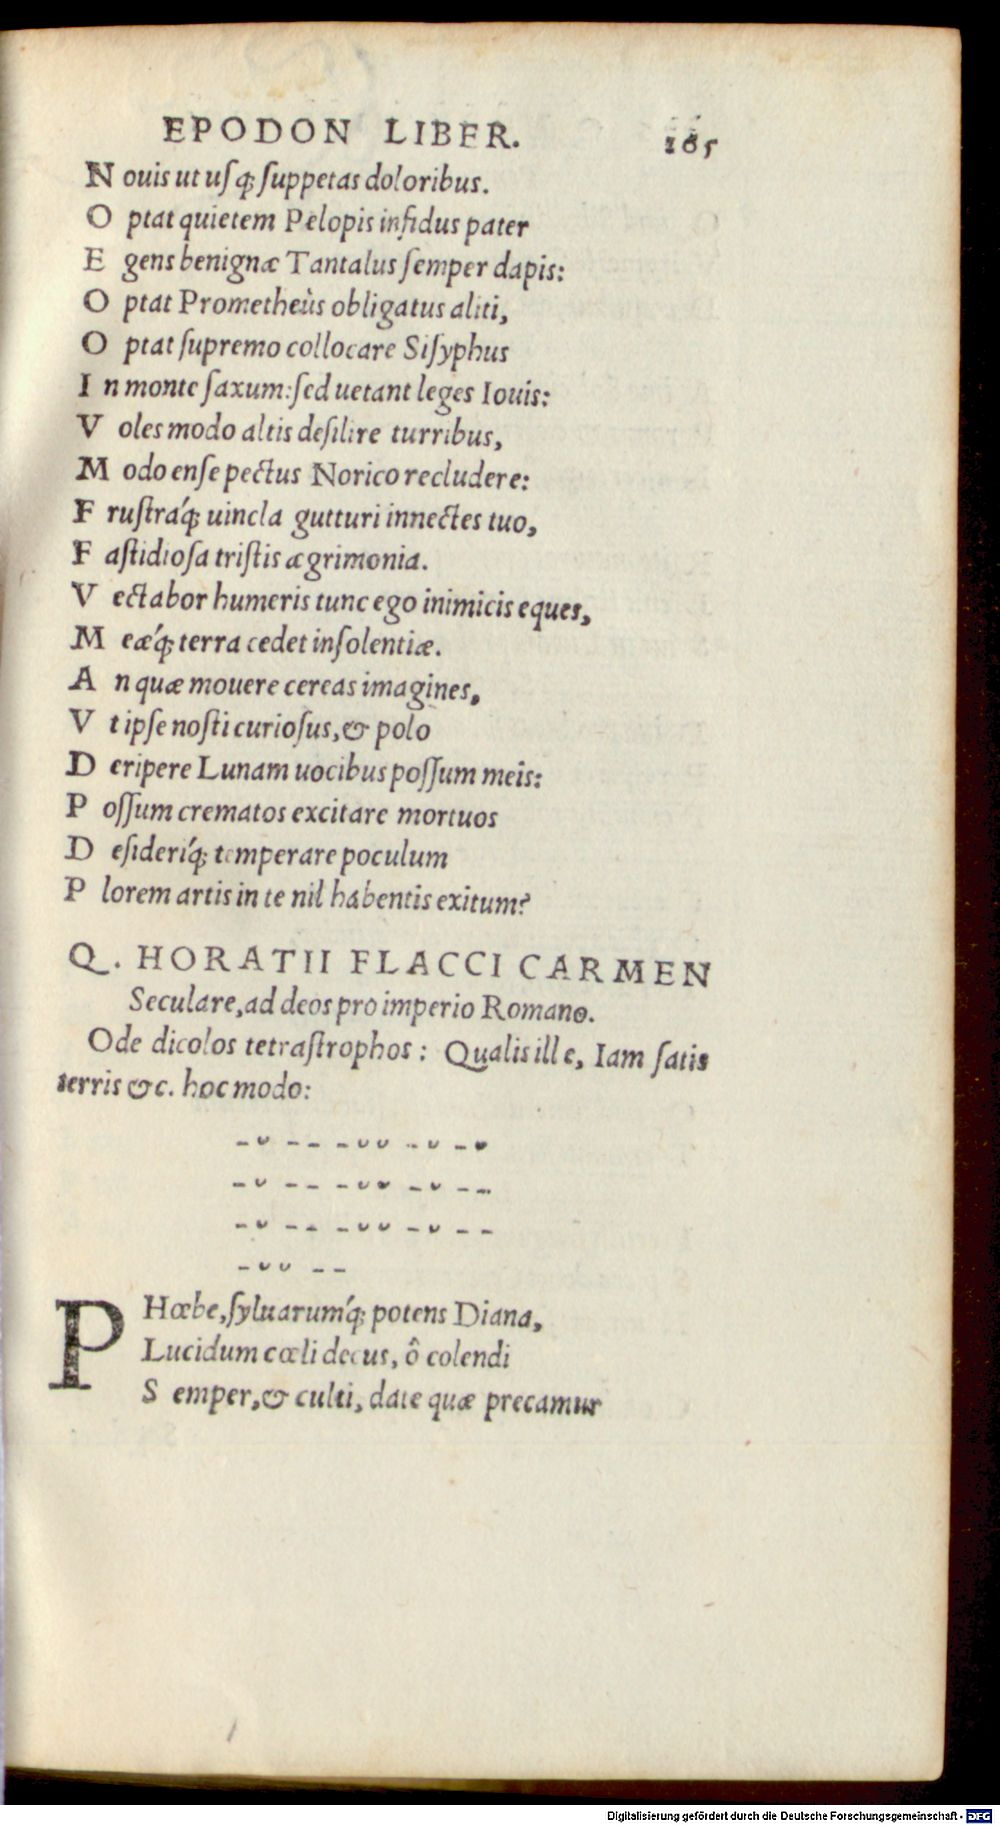 EPODON LIBER. 165
N ouis ut usq́; suppetas doloribus.
O ptat quietem Pelopis infidus pater
E gens benignæ Tantalus semper dapis:
O ptat Prometheùs obligatus aliti,
O ptat supremo collocare Sisyphus
I n monte saxum: sed uetant leges Iouis:
V oles modo altis desilire turribus,
M odo ense pectus Norico recludere:
F rustráq; uincla gutturi innectes tuo,
F astidiosa tristis ægrimonia.
V ectabor humeris tunc ego inimicis eques,
M eæq́; terra cedet insolentiæ.
A n quæ mouere cereas imagines,
V t ipse nosti curiosus, & polo
D eripere Lunam uocibus possum meis:
P ossum crematos excitare mortuos
D esideríq; temperare poculum
P lorem artis in te nil habentis exitum?
Q. HORATII FLACCI CARMEN
Seculare, ad deos pro imperio Romano.
Ode dicolos tetrastrophos: Qualis ille, Iam satis
terris &c. hoc modo:
– ᴗ – – – ᴗ ᴗ – ᴗ – ᴗ
– ᴗ – – – ᴗ ᴗ – ᴗ – –
– ᴗ – – – ᴗ ᴗ – ᴗ – –
– ᴗ ᴗ – –
PHœbe, syluarumq́; potens Diana,
Lucidum cœli decus, ô colendi
S emper, & culti, date quæ precamur
Digitalisierung gefördert durch die Deutsche Forschungsgemeinschaft - DFG